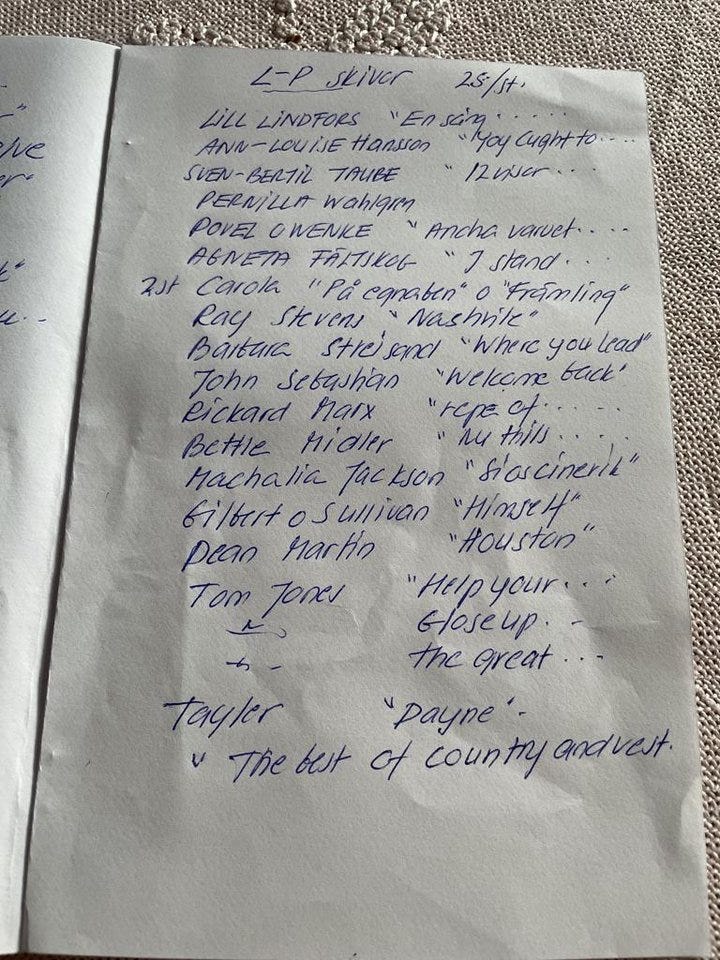 "
elve
er"
k"
u..
L-P skivor 25:/st.
LILL LINDFORS "En sång......
ANN-LOUISE Hansson "Yoy Ought to....
SVEN-BERTIL TAUBE "12 visor...
PERNILLA Wahlgren
POVEL O WENKE "Ancha varvet....
AGNETA FÄLTSKOG "I stand....
2st Carola "På egna ben" o "Främling"
Ray Stevens "Nashvile"
Barbara Streisand "Where you lead"
John Sebastian "Welcome back"
Rickard Marx "repe of.....
Bettle Midler "Nu thils.....
Machalia Jackson
Gilbert o Sullivan "Himself"
Dean Martin "Houston"
Tom Jones "Help your...
-"- Close up..
-"- the great...
Tayler "Dayne".
" The best of country and vest.